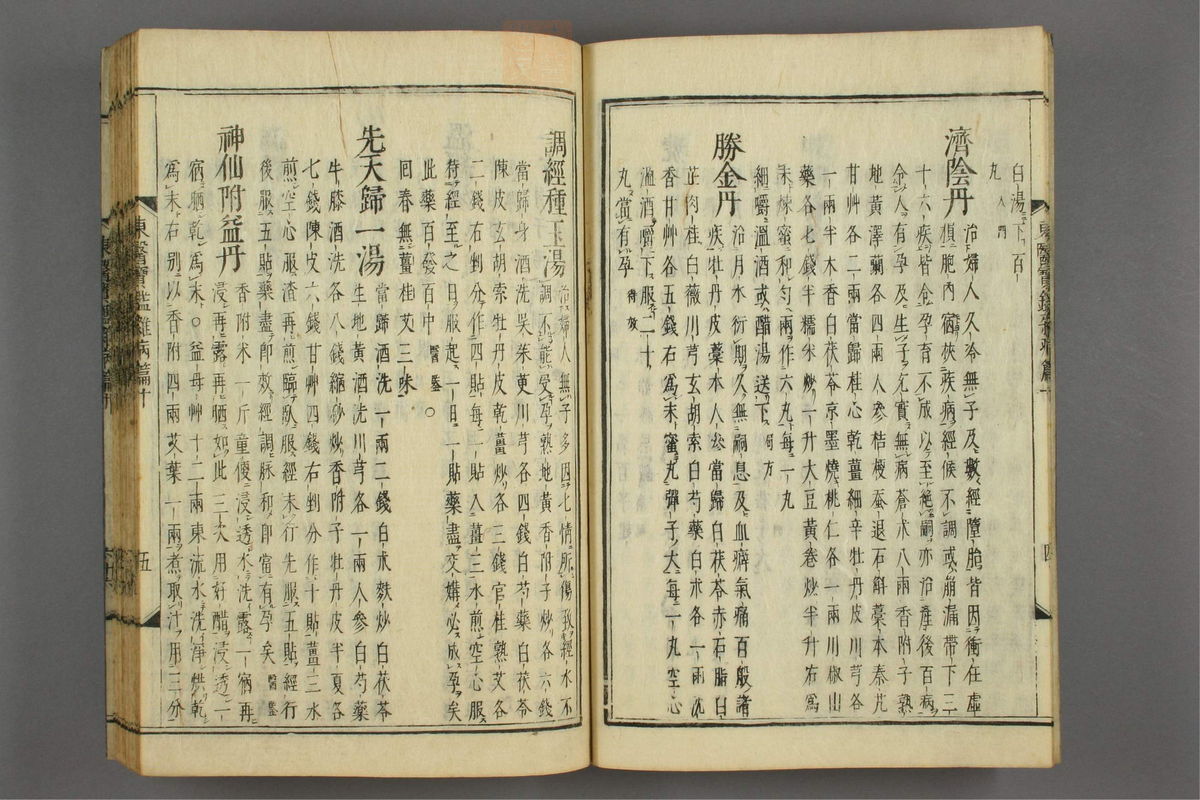 白湯下百
丸 入門
濟陰丹 治婦人久冷無子及數經墮胎皆因衝任虛
損胞內宿挾疾病經候不調或崩漏帶下三
十六疾皆令孕育不成以至絶嗣亦治產後百病
令人有孕及生子充實無病蒼朮八兩香附子熟
地黃澤蘭各四兩人參桔梗蚕退石斛藁本秦艽
甘艸各二兩當歸桂心乾薑細辛牡丹皮川芎各
一兩半木香白茯苓京墨燒桃仁各一兩川椒山
藥各七錢半糯米炒一升大豆黃卷炒半升右爲
末煉蜜和勻兩作六丸每一丸
細嚼溫酒或醋湯送下 局方
勝金丹 治月水衍期久無嗣息及血癖氣痛百般諸
疾牡丹皮藁本人參當歸白茯苓赤石脂白
芷肉桂白薇川芎玄胡索白芍藥白朮各一兩沈
香甘艸各五錢右爲末蜜丸彈子大每一丸空心
溫酒嚼下服二十
丸當有孕 得效
東醫寶鑑雜病篇十
四
調經種玉湯 治婦人無子多因七情所傷致經水不
調不能受孕熟地黃香附子炒各六錢
當歸身酒洗吳茱萸川芎各四錢白芍藥白茯苓
陳皮玄胡索牡丹皮乾薑炒各三錢官桂熟艾各
二錢右剉分作四貼每一貼入薑三水煎空心服
待經至之日服起一日一貼藥盡交媾必成孕矣
此藥百發百中 醫鑒 ○
回春無薑桂艾三味
先天歸一湯 當歸酒洗一兩二錢白朮麩炒白茯苓
生地黃酒洗川芎各一兩人參白芍藥
牛膝酒洗各八錢縮砂炒香附子牡丹皮半夏各
七錢陳皮六錢甘艸四錢右剉分作十貼薑三水
煎空心服渣再煎臨臥服經未行先服五貼經行
後服五貼藥盡卽效經調脉和卽當有孕矣 醫鑒
神仙附益丹 香附米一斤童便浸透水洗露一宿再
浸再露再晒如此三次用好醋浸透一
宿晒乾爲末○益母艸十二兩東流水洗淨烘乾
爲末右別以香附四兩艾葉一兩煮取汁用三分
東醫寶鑑雜病篇十
五